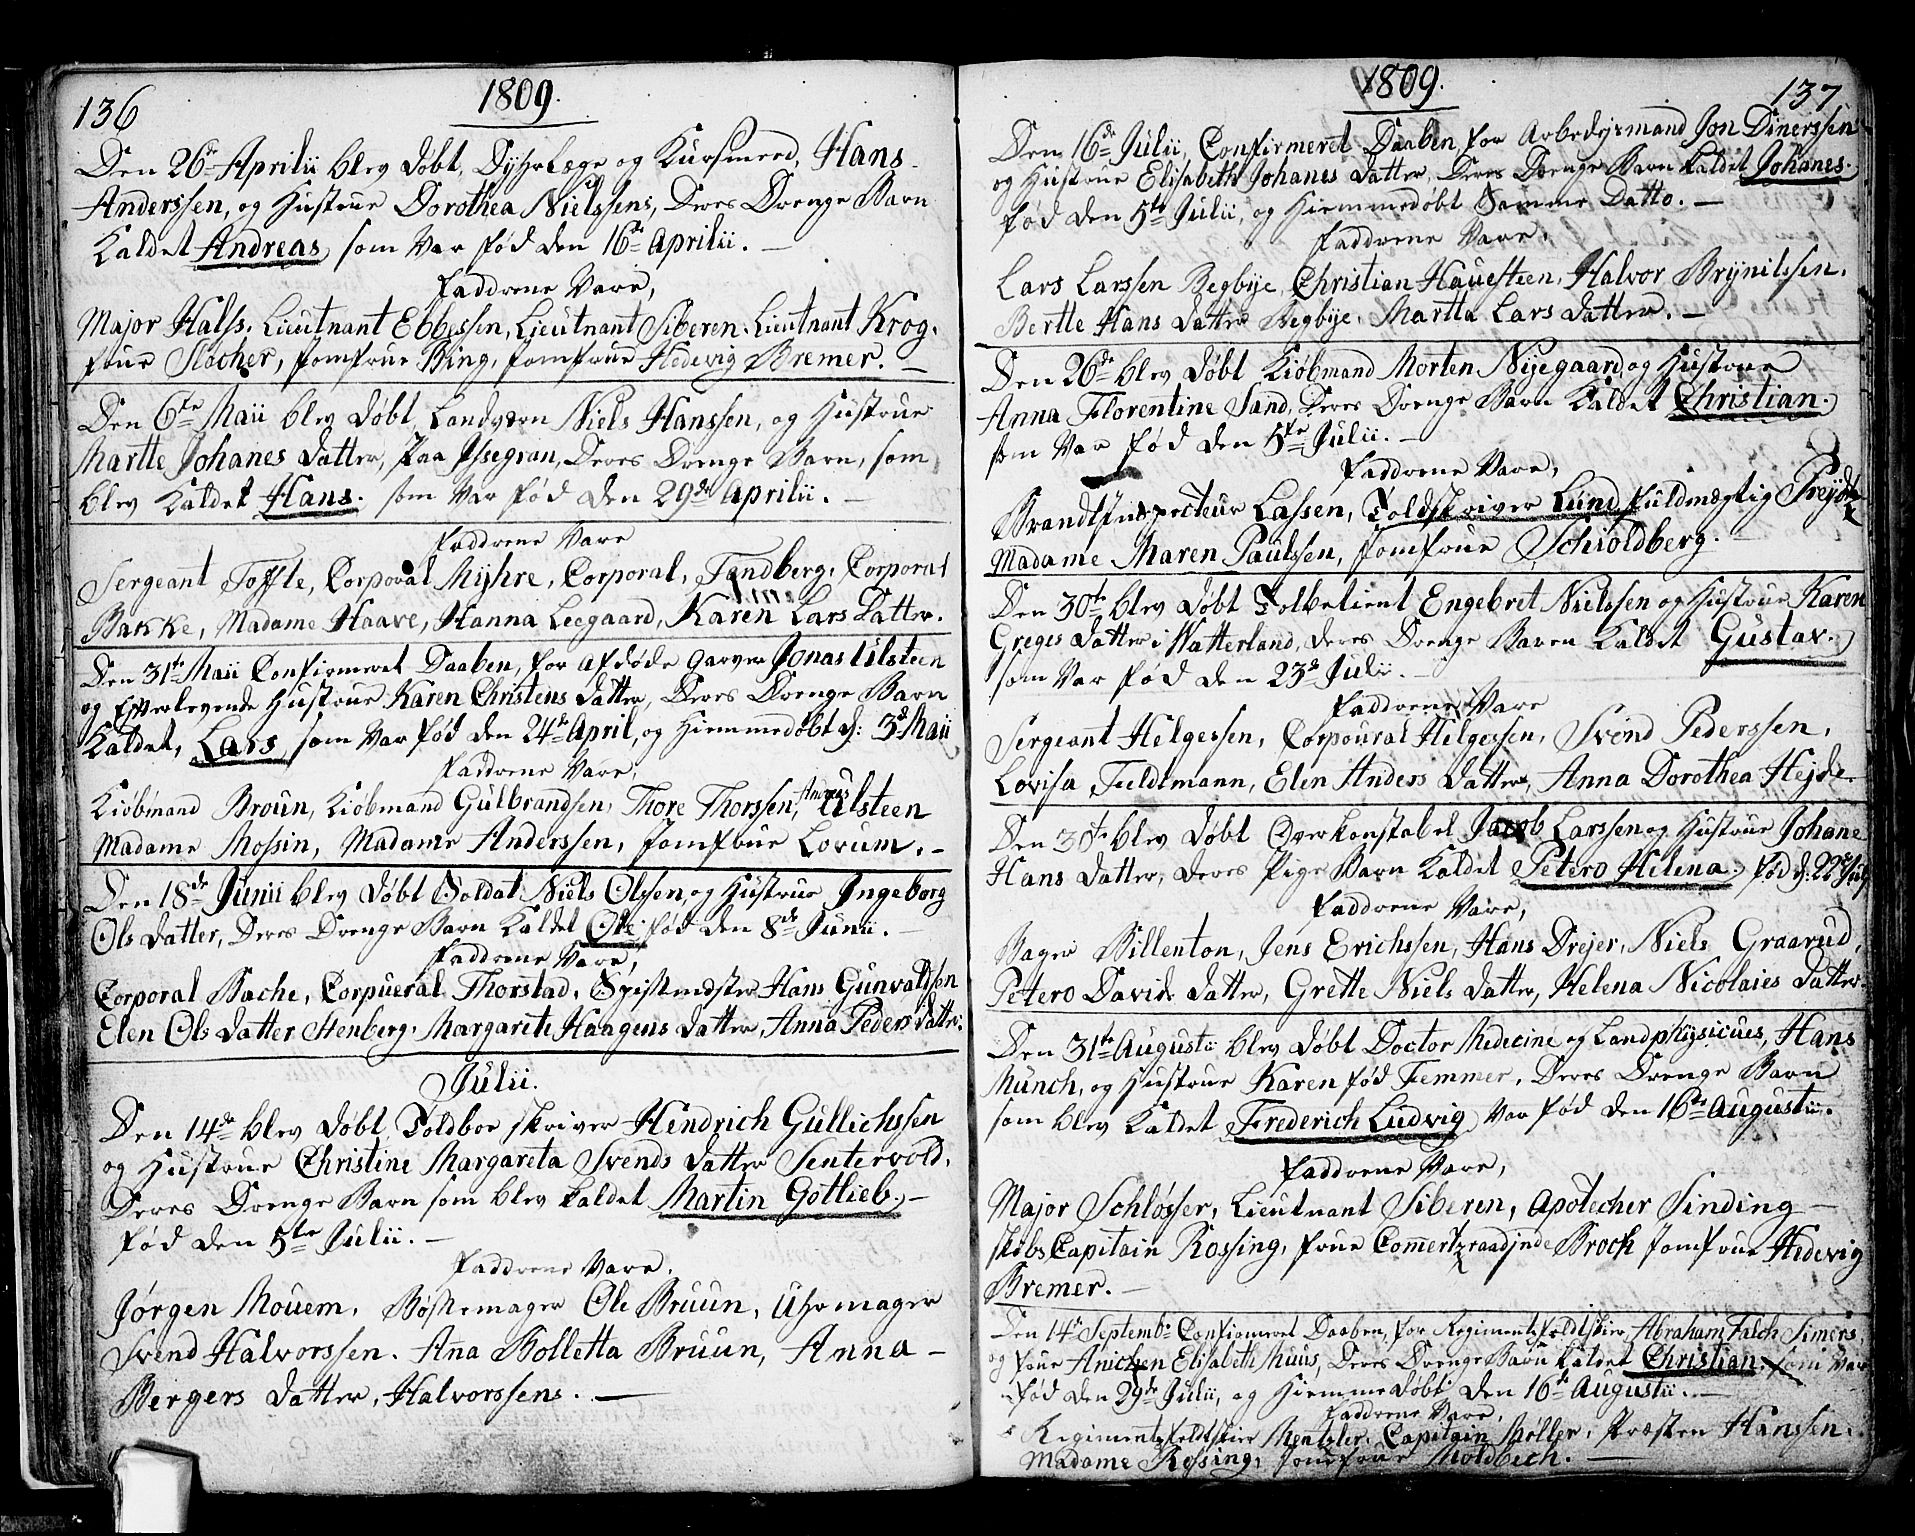 136
1809.
Den 26de Aprilii blev døbt, Dyhrlæge og Kursmeed, Hans
Anderssen, og Hustrue Dorothea Nielssens, Deres Drenge Barn
Kaldet Andreas, som var fød den 16de Aprilii. —
Faddrene Vare,
Major Halss. Lieutnant Ebbessen, Lieutnant Siberen. Lieutnant Krog.
frue Slocher, Jomfrue Bing, Jomfrue Hedevig Bremer. —
Den 6te Maii blev døbt, Landværn Niels Hanssen, og Hustrue
Martte Johanes datter, paa Issegran, Deres Drenge Barn, som
blev Kaldet Hans. som var fød den 29de Aprilii. —
Faddrene Vare
Sergeant Toffte, Corporal Myhre, Corporal, Tandberg, Corporal
Bakke, Madame Haave, Hanna Leegaard, Karen Lars Datter.
Den 31te Maii Confirmeret Daaben, for afdøde garver Jonas Ulsteen
og Efterlevende Hustrue Karen Christens datter, Deres Drenge Barn
Kaldet, Lars, som var fød den 24de April, og Hiemmedøbt d: 3de Maii
Faddrene Vare,
Kiøbmand Broun, Kiøbmand Gulbrandsen, Thore Thorssen, Andreas Ulsteen
Madame Mossin, Madame Anderssen, Jomfrue Lorum. —
Den 18de Junii blev døbt Soldat Niels Olssen og Hustrue Ingeborg
Ols datter, Deres Drenge Barn Kaldet Ole, fød den 8de Junii. —
Faddrene Vare,
Corporal Bache, Corpueral Thorstad, Hans Gunvaldsen
Elen Ols datter Stenberg, Margarete Haagens datter, Anna Peders datter.
Julii.
Den 14de blev døbt, Toldboe skriver Hindrich Gullichssen
og Hustrue Christine Margareta Svends datter Sentervold.
Deres Drenge Barn som blev kaldet Martin Gotlieb. —
fød den 5te Julii. —
Faddrene Vare.
Jørgen Mouem, Bøssemager Ole Bruun, Uhrmager
Svend Halvorssen. Ana Bolletta Bruun, Anna —
Bergers datter, Halvorssens. —
1809.
137
Den 16de Julii, Confirmeret Daaben for Arbedsmand Jon Dinerssen
og Hustrue Elisabeth Johanes datter, Deres Drenge Barn Kaldet Johanes.
fød den 5te Julii, og Hiemmedøbt Samme Datto. —
Faddrene Vare,
Lars Larssen Begbye, Christian Hauesteen, Halvor Brynilssen.
Bertte Hans datter Begbye. Martta Lars datter. —
Den 26de blev døbt Kiøbmand Morten Nyegaard og Hustrue
Anna Florentine Sand, Deres Drenge Barn Kaldet Christian.
som var fød den 5te Julii. —
Faddrene Vare,
Brandtinspecteur Lassen, Toldskriver Lund fuldmægtig
Madame Maren Paulssen, Jomfrue Schioldberg. —
Den 30te blev døbt Tolbetient Engebret Nielssen og Hustrue Karen
Greges datter i Watterland, deres Drenge Baren Kaldet Gustav.
som var fød den 23de Julii. —
Faddrene Vare
Sergeant Helgessen, Corpoural Helgessen, Svend Pederssen,
Lovisa Feldtmann, Elen Anders datter, Anna Dorothea Hejde —
Den 30te blev døbt Overkonstabel Jacob Larssen og Hustrue Johane
Hans datter, deres Pige Barn Kaldet Petero Helena. fød d: 22de July
Faddrene Vare,
Bager Billenton, Jens Erichssen, Hans Drejer, Niels Graarud,
Petero Davids datter, Grette Niels datter, Helena Nicolaies datter.
Den 31te Augustii blev døbt Doctor Medecine og Landphysicues, Hans
Münch, og Hustrue Karen fød Femmer, Deres Drenge Barn
som blev Kaldet Frederich Ludvig, var fød den 16de Augustii.
Faddrene Vare,
Major Schløsser, Lieutnant Siberen, Apotecher Sinding —
skibs Capitain Rossing, frue Comertzraadinde Broch Jomfrue Hedevig
Bremer. —
Den 14de Septembr Confirmeret Daaben, for Regimentsfeldtskier Abraham Falch Simers,
og frue Anichen Elisabeth Muus, Deres Drenge Barn Kaldet Christian. som var
fød den 29de Julii, og Hiemmedøbt den 16de Augustii. —
Faddrene Vare,
Regimentsfeldtskier Mentzler. Capitain Møller, Præsten Hanssen.
Madame Rossing, Jomfrue Moldbech. —